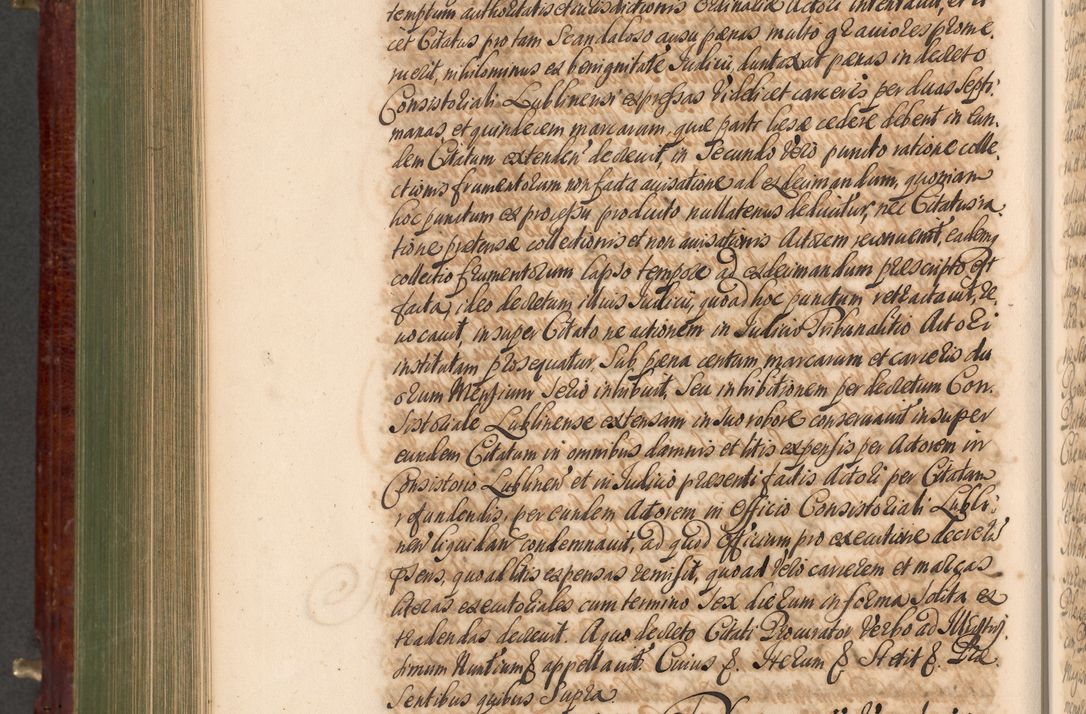 templum authoritatis et iurisdictionis Ordinariæ Actori intentavit, et li
cet Citatus pro tam Scandaloso ausu pænas multo graviores prome,
ruerit, nihilominus ex benignitate Iudicii, duntaxat pænas in decreto
Consistoriali Lublinensi expressas Videlicet carceris per duas Septi,
manas et quindecem marcarum, quæ parti læsæ cedere debent in Eun,
dem Citatum extenden' decrevit, in Secundo Vero puncto ratione colle,
ctionis frumentorum non facta avisatione ad exdecimandum, quoniam
hoc punctum ex processu producto nullatenus deducitur, nec Citatus ra,
tione prætensæ collectionis et non avisationis Actorem reconvenit, eademq
collectio frumentorum lapso tempore ad exdecimandum præscripto est
facta, ideo decretum illius Iudicii, quoad hoc punctum retractavit, re,
vocavit, insuper Citato ne actionem in Iudicio Tribunalitio Actori
institutam prosequatur, Sub pæna centum marcarum et carceris du
orum Mensium Serio inhibuit, Seu inhibitionem per decretum Con,
sistoriale Lublinense extensam in suo robore conservavit insuper
eundem Citatum in omnibus damnis et litis expensis per Actorem in
Consistorio Lublinen' et in Iudicio præsenti factis Actori per Citatum
refundendis, per eundem Actorem in Officio Consistoriali Lubli,
nen' liquidan' condemnavit, ad quod Officium pro executione decreti
præsens, quoad litis expensas remisit, quoad Vero carcerem et marcas
literas executoriales cum termino Sex dierum in forma Solita ex
tradendas decrevit. A quo decreto Citati Procurator Verbo ad Illustris,
simum Nuntium &. appellavit. Cuius &. Iterum &. Stetit &. Præ
sentibus quibus Supra.